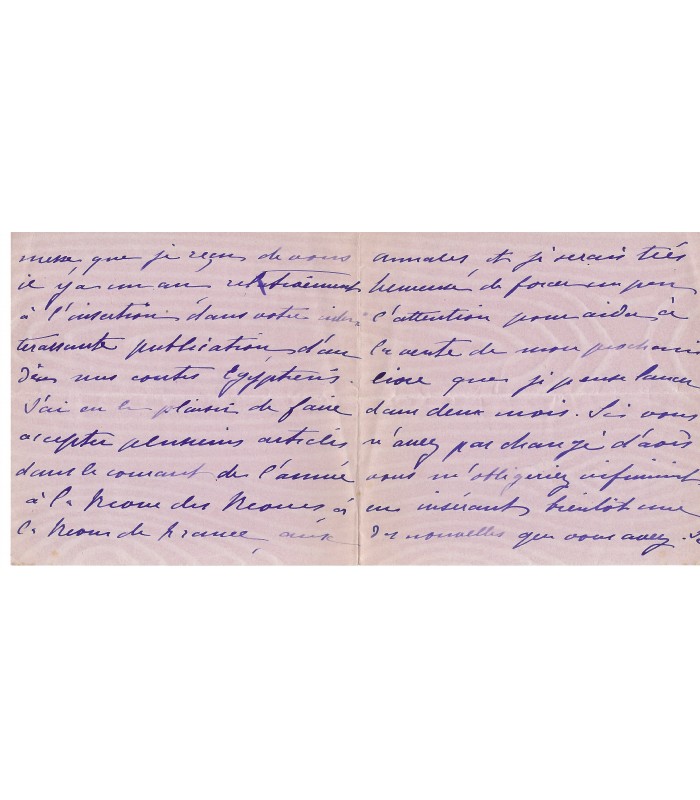 messe que je reçus de vous
il y a un an relativement
à l'insertion dans votre inté-
ressante publication d'un
de mes contes Egyptiens.
J'ai eu le plaisir de faire
accepter plusieurs articles
dans le courant de l'année
à la Revue des Revues, à
la Revue de France, aux
annales et je serais très
heureuse de forcer un peu
l'attention pour aider à
la vente de mon prochain
livre que je pense lancer
dans deux mois. Si vous
n'avez pas changé d'avis
vous m'obligeriez infiniment
en insérant bientôt une
des nouvelles que vous avez. Je